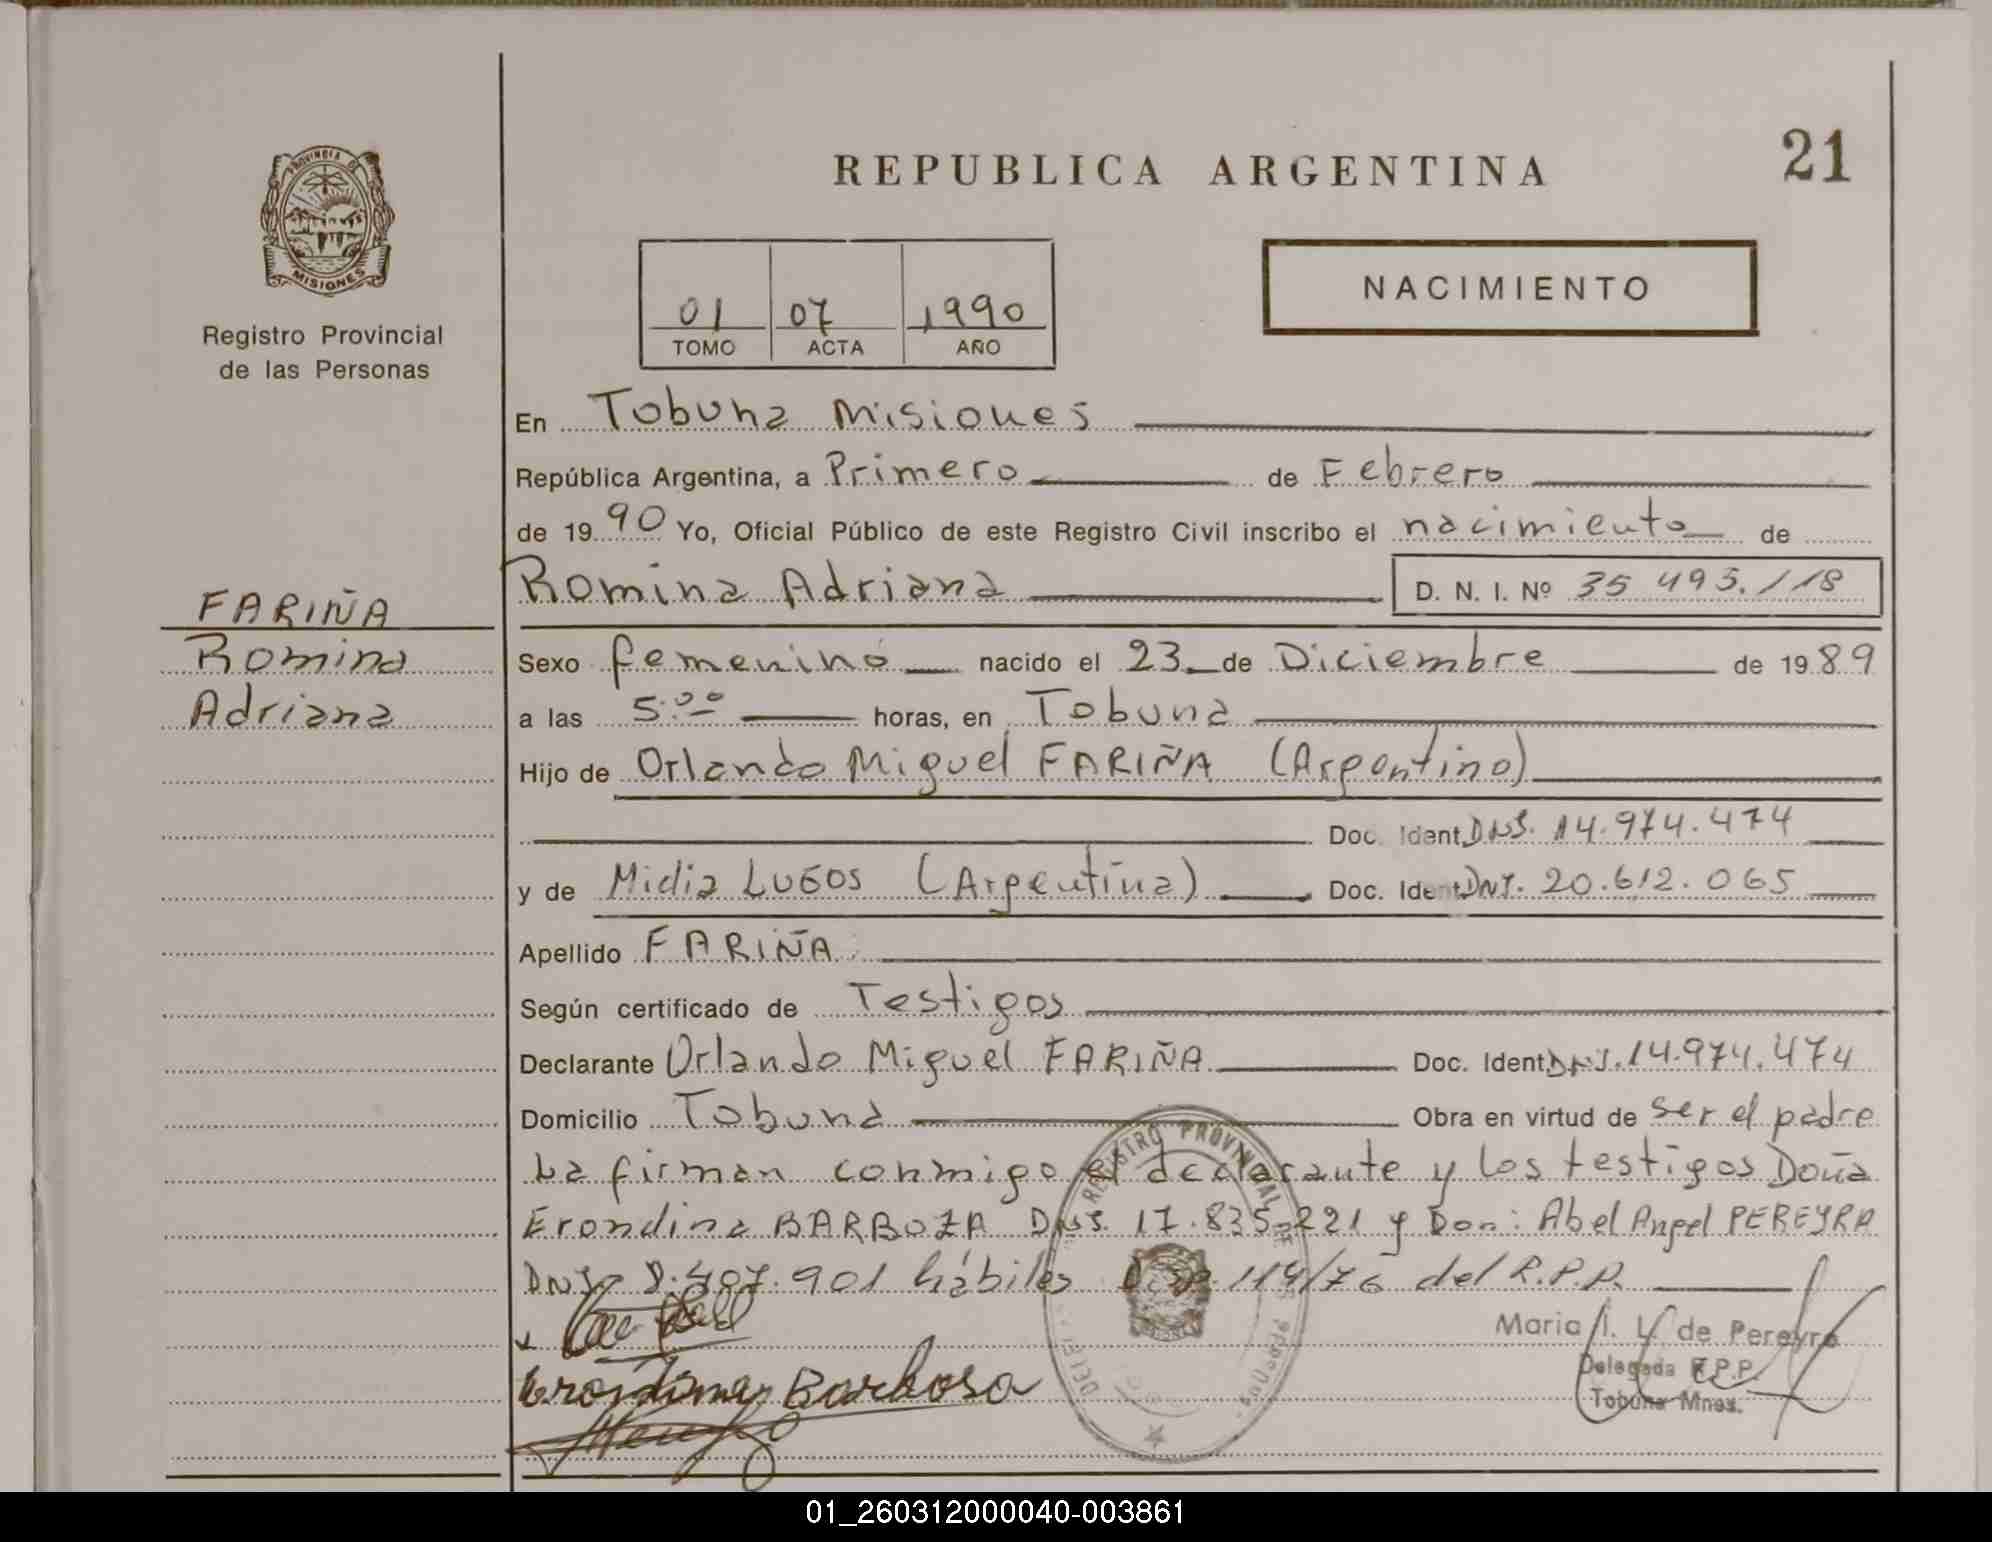 PROVINCIA DE
MISIONES
Registro Provincial
de las Personas
FARIÑA
Romina
Adriana
REPUBLICA ARGENTINA
21
01 07 1990
TOMO ACTA AÑO
NACIMIENTO
En Tobuna Misiones
República Argentina, a Primero de Febrero
de 1990 Yo, Oficial Público de este Registro Civil inscribo el nacimiento de
Romina Adriana D. N. I. Nº 35 493.118
Sexo femenino nacido el 23 de Diciembre de 1989
a las 5:00 horas, en Tobuna
Hijo de Orlando Miguel FARIÑA (Argentino)
Doc. Ident. DNI. 14.974.474
y de Midia LUGOS (Argentina) Doc. Ident. DNI. 20.612.065
Apellido FARIÑA
Según certificado de Testigos
Declarante Orlando Miguel FARIÑA Doc. Ident. DNI. 14.974.474
Domicilio Tobuna Obra en virtud de ser el padre
La firman conmigo el declarante y los testigos Doña
Erondina BARBOZA DNI. 17.835.221 y Don: Abel Angel PEREYRA
DNI 8.407.901 hábiles Disp. 114/76 del R.P.P.
Maria I. L. de Pereyra
Delegada R.P.P.
Tobuna Mnes.
Erondina Barbosa
REGISTRO PROVINCIAL DE
01_260312000040-003861